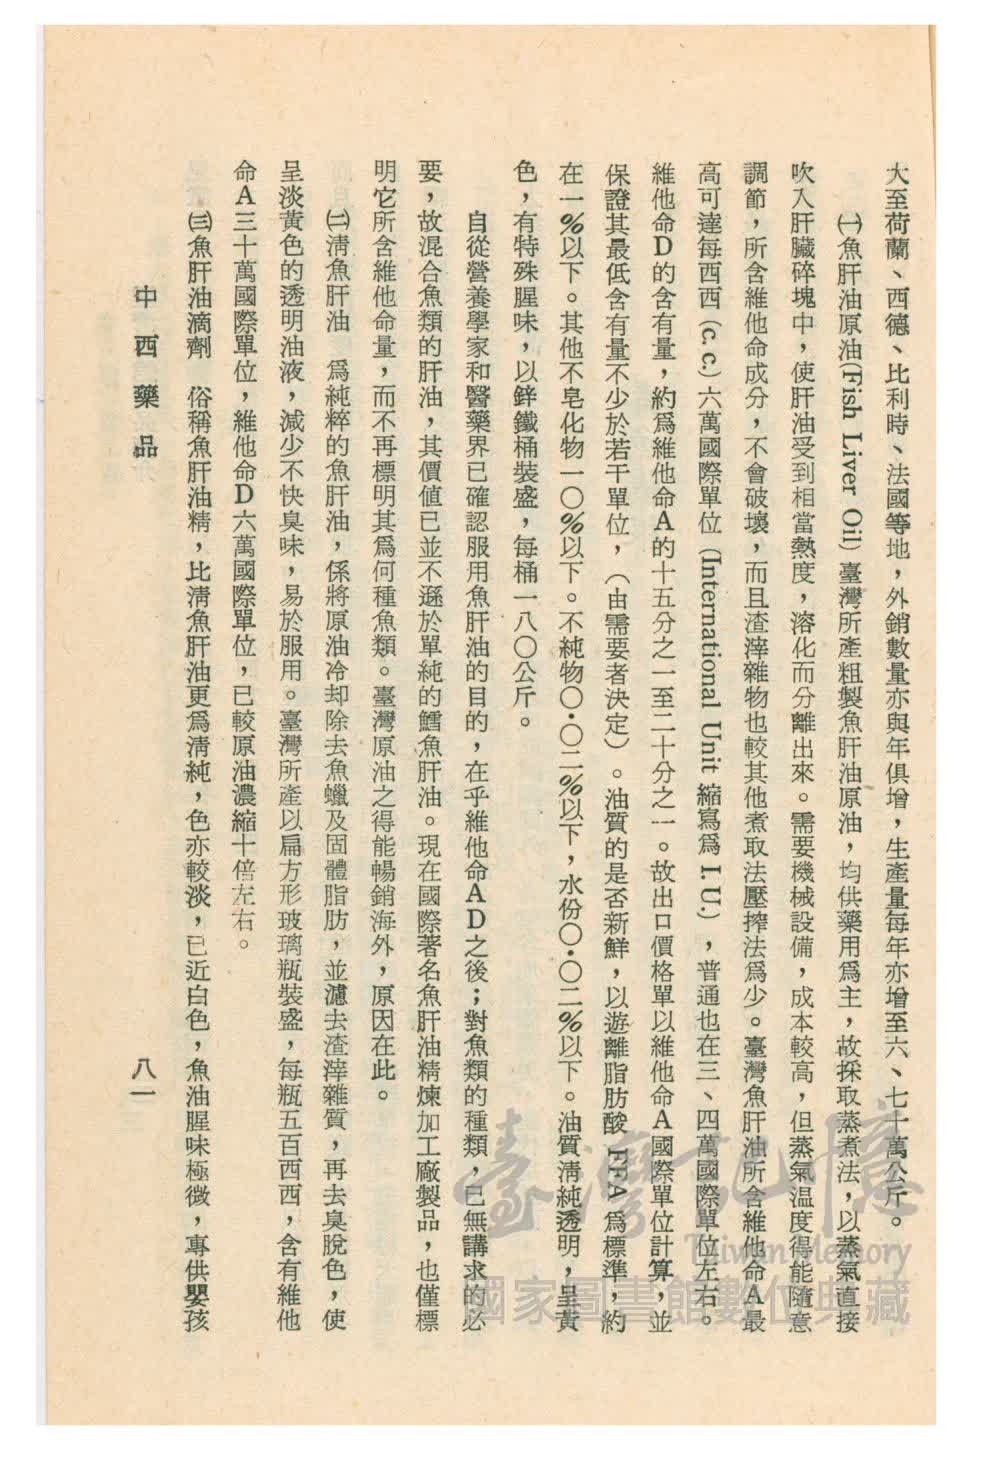 大至荷蘭、西德、比利時、法國等地，外銷數量亦與年俱增，生產量每年亦增至六、七十萬公斤。
㈠魚肝油原油(Fish Liver Oil) 臺灣所產粗製魚肝油原油，均供藥用爲主，故採取蒸煮法，以蒸氣直接
吹入肝臟碎塊中，使肝油受到相當熱度，溶化而分離出來。需要機械設備，成本較高，但蒸氣溫度得能隨意
調節，所含維他命成分，不會破壞，而且渣滓雜物也較其他煮取法壓搾法爲少。臺灣魚肝油所含維他命A最
高可達每西西 (c. c.) 六萬國際單位 (International Unit 縮寫爲 I. U.) ，普通也在三、四萬國際單位左右。
維他命D的含有量，約爲維他命A的十五分之一至二十分之一。故出口價格單以維他命A國際單位計算，並
保證其最低含有量不少於若干單位，（由需要者決定）。油質的是否新鮮，以遊離脂肪酸 FFA 爲標準，約
在一％以下。其他不皂化物一〇％以下。不純物〇．〇二％以下，水份〇．〇二％以下。油質淸純透明，呈黃
色，有特殊腥味，以鋅鐵桶裝盛，每桶一八〇公斤。
自從營養學家和醫藥界已確認服用魚肝油的目的，在乎維他命AD之後；對魚類的種類，已無講求的必
要，故混合魚類的肝油，其價值已並不遜於單純的鱈魚肝油。現在國際著名魚肝油精煉加工廠製品，也僅標
明它所含維他命量，而不再標明其爲何種魚類。臺灣原油之得能暢銷海外，原因在此。
㈡淸魚肝油　爲純粹的魚肝油，係將原油冷却除去魚蠟及固體脂肪，並濾去渣滓雜質，再去臭脫色，使
呈淡黃色的透明油液，減少不快臭味，易於服用。臺灣所產以扁方形玻璃瓶裝盛，每瓶五百西西，含有維他
命A三十萬國際單位，維他命D六萬國際單位，已較原油濃縮十倍左右。
㈢魚肝油滴劑　俗稱魚肝油精，比淸魚肝油更爲淸純，色亦較淡，已近白色，魚油腥味極微，專供嬰孩
中西藥品
八一
臺灣記憶
Taiwan Memory
國家圖書館數位典藏